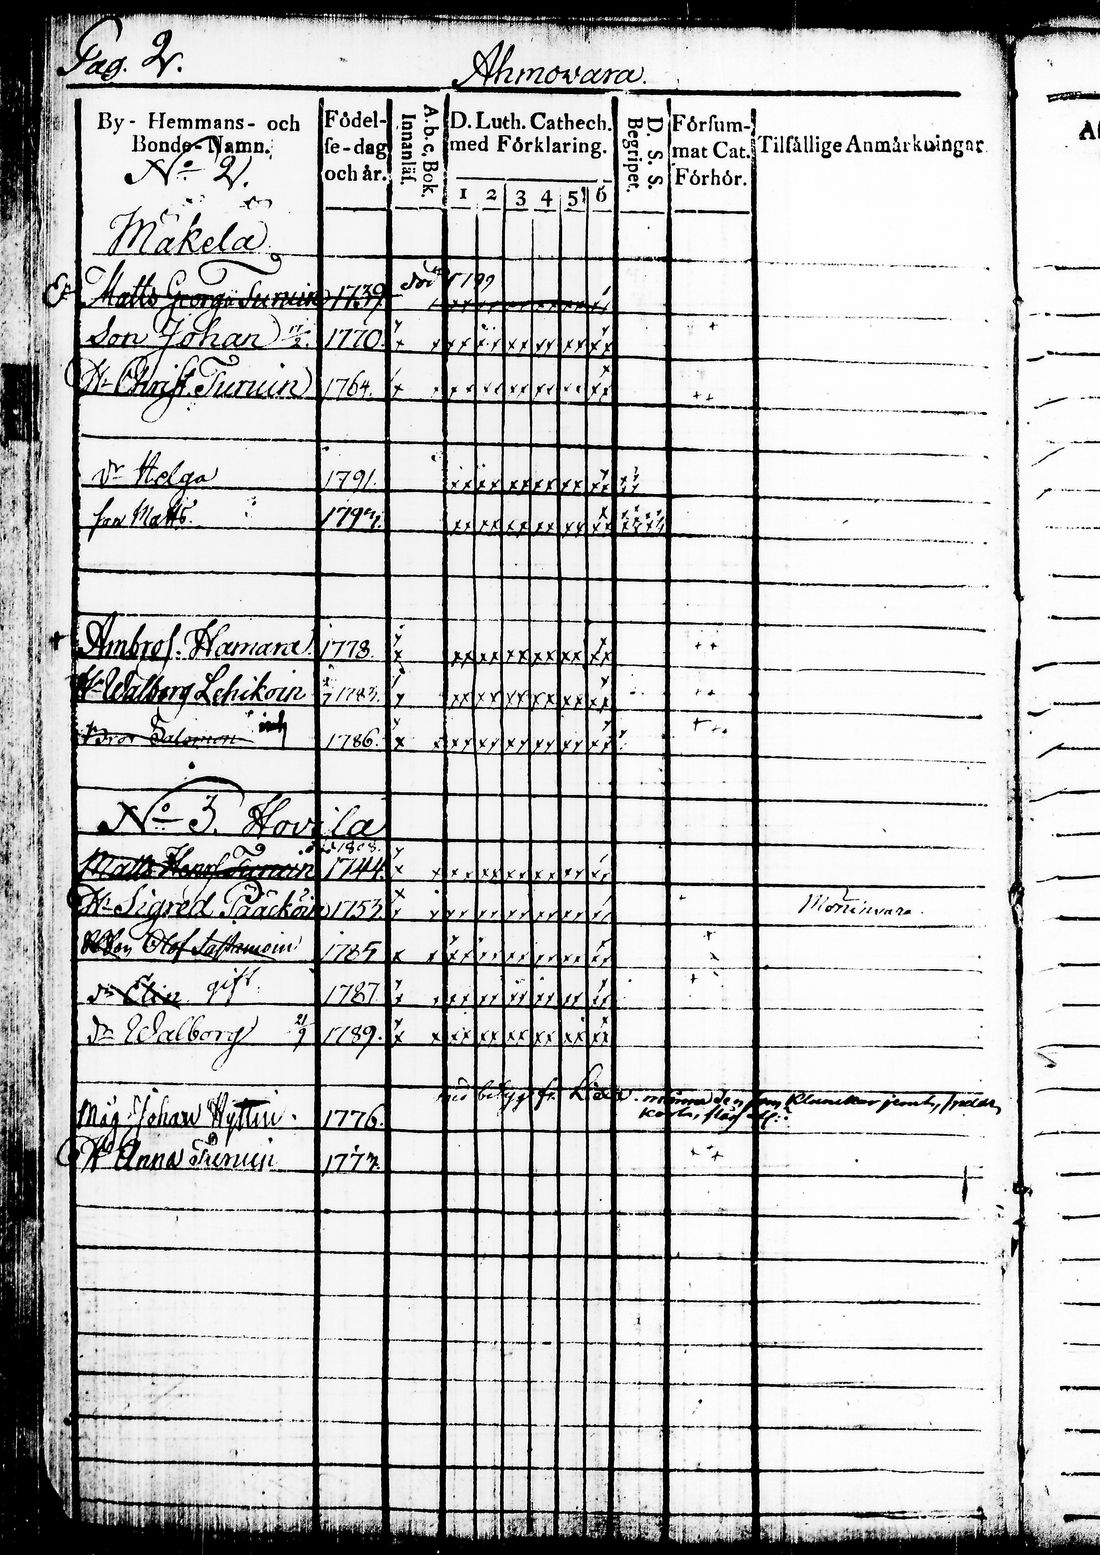 Pag. 2.
Ahmovara.
By- Hemmans- och Bonde-Namn.
Födel-se-dag och år.
A.b.c, Bok. Innanläs.
D. Luth. Cathech. med Förklaring.
1 2 3 4 5 6
D. S. S. Begripet.
Försum-mat Cat. Förhör.
Tilfällige Anmärkningar
No 2.
Mäkelä
Matts Georgs Turuin 1739 död 1799
Son Johan 1770.
H. Christ. Turuin 1764.
dr Helga 1791.
son Matts. 179
Ambros. Hamara 1773.
H. Walborg Lehikoin 1783.
Bror Salomon 1786.
No 3. Hovila
Matts Henr. Turuin 1744. 1808.
H. Sigred Pääcköin 1753
Olof Sastamoin 1785
dr Elin gift. 1787
dr Walborg 21/9 1789.
Måg Johan Hyttin. 1776.
med betyg fr.
H. Anna Turuin 177